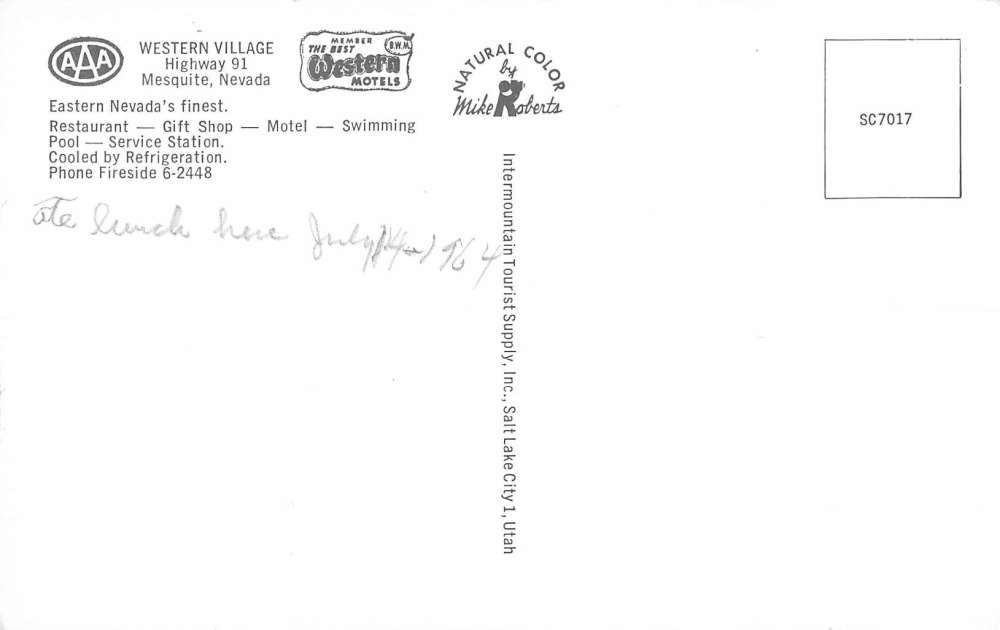 AAA
WESTERN VILLAGE
Highway 91
Mesquite, Nevada
MEMBER
B.W.M.
THE BEST
Western
MOTELS
NATURAL COLOR
by
Mike Roberts
SC7017
Eastern Nevada's finest.
Restaurant — Gift Shop — Motel — Swimming
Pool — Service Station.
Cooled by Refrigeration.
Phone Fireside 6-2448
ate lunch here July 14-1964
Intermountain Tourist Supply, Inc., Salt Lake City 1, Utah